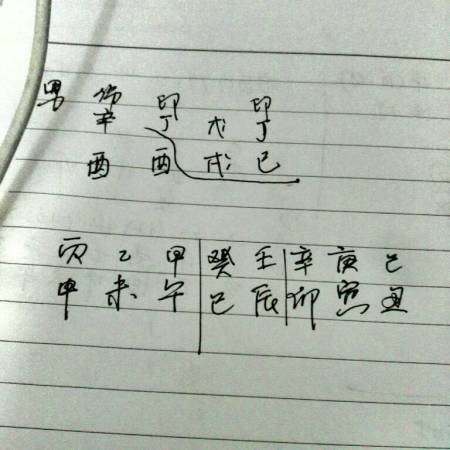 男 伤 印 印
辛 丁 戊 丁
酉 酉 戌 巳
丙 乙 甲 癸 壬 辛 庚 己
申 未 午 巳 辰 卯 寅 丑